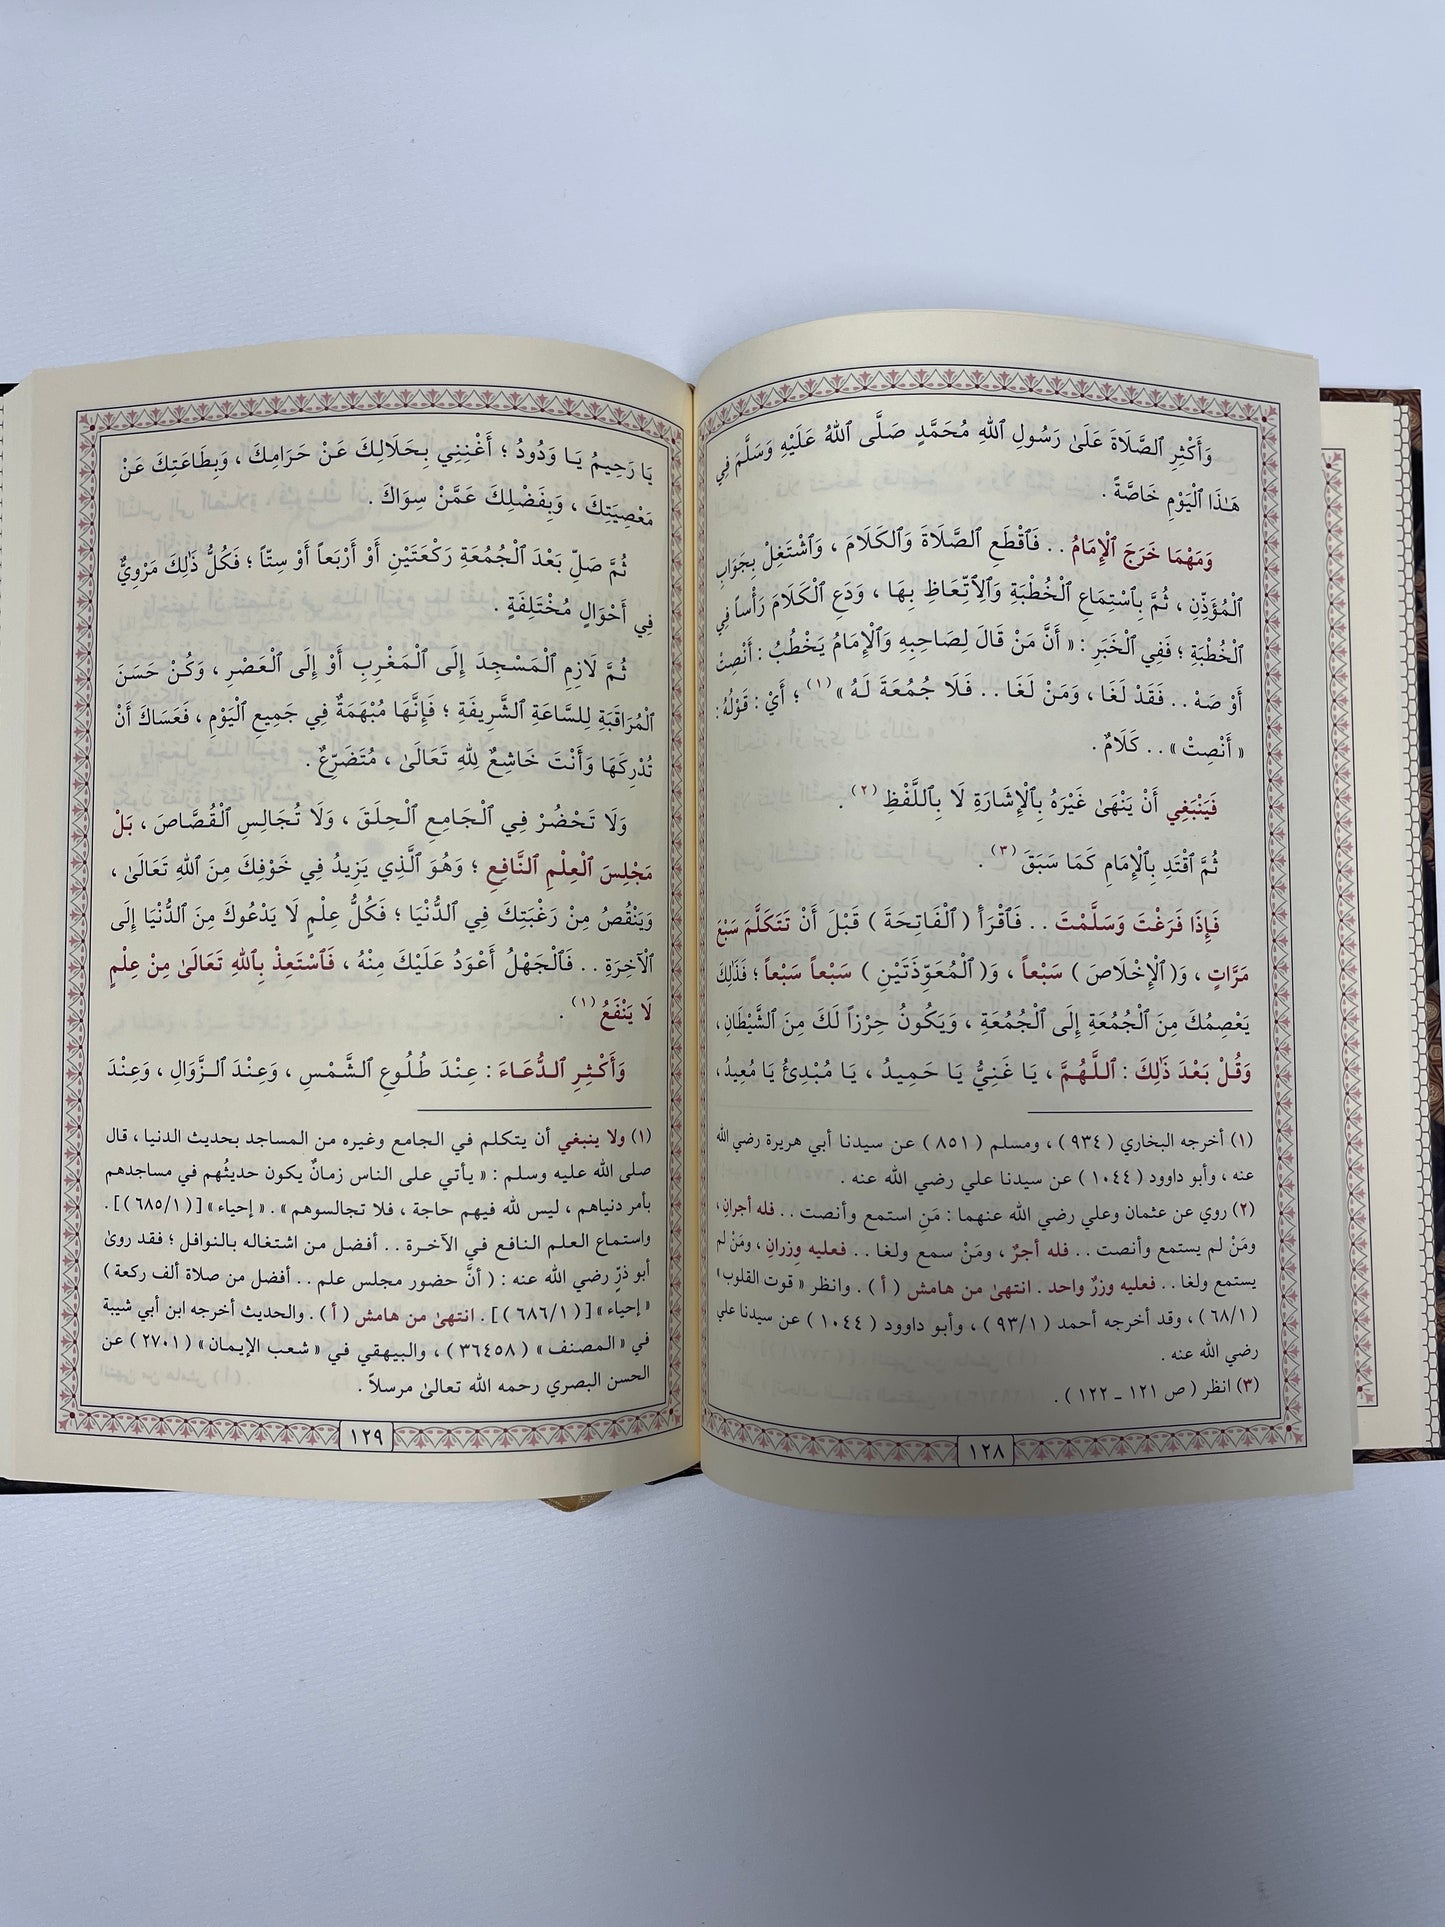 وَأَكْثِرِ ٱلصَّلَاةَ عَلَىٰ رَسُولِ ٱللهِ مُحَمَّدٍ صَلَّى ٱللهُ عَلَيْهِ وَسَلَّمَ فِي
هَـٰذَا ٱلْيَوْمِ خَاصَّةً .
وَمَهْمَا خَرَجَ ٱلْإِمَامُ . . فَٱقْطَعِ ٱلصَّلَاةَ وَٱلْكَلَامَ ، وَٱشْتَغِلْ بِجَوَابِ
ٱلْمُؤَذِّنِ ، ثُمَّ بِٱسْتِمَاعِ ٱلْخُطْبَةِ وَٱلِٱتِّعَاظِ بِهَا ، وَدَعِ ٱلْكَلَامَ رَأْساً فِي
ٱلْخُطْبَةِ ؛ فَفِي ٱلْخَبَرِ : « أَنَّ مَنْ قَالَ لِصَاحِبِهِ وَٱلْإِمَامُ يَخْطُبُ : أَنْصِتْ
أَوْ صَهْ . . فَقَدْ لَغَا ، وَمَنْ لَغَا . . فَلَا جُمُعَةَ لَهُ » (١) ؛ أَيْ : قَوْلُهُ :
« أَنْصِتْ » . . كَلَامٌ .
فَيَنْبَغِي أَنْ يَنْهَىٰ غَيْرَهُ بِٱلْإِشَارَةِ لَا بِٱللَّفْظِ (٢) .
ثُمَّ ٱقْتَدِ بِٱلْإِمَامِ كَمَا سَبَقَ (٣) .
فَإِذَا فَرَغْتَ وَسَلَّمْتَ . . فَٱقْرَأْ ( ٱلْفَاتِحَةَ ) قَبْلَ أَنْ تَتَكَلَّمَ سَبْعَ
مَرَّاتٍ ، وَ( ٱلْإِخْلَاصَ ) سَبْعاً ، وَ( ٱلْمُعَوِّذَتَيْنِ ) سَبْعاً سَبْعاً ؛ فَذَٰلِكَ
يَعْصِمُكَ مِنَ ٱلْجُمُعَةِ إِلَى ٱلْجُمُعَةِ ، وَيَكُونُ حِرْزاً لَكَ مِنَ ٱلشَّيْطَانِ .
وَقُلْ بَعْدَ ذَٰلِكَ : ٱللَّهُمَّ ، يَا غَنِيُّ يَا حَمِيدُ ، يَا مُبْدِئُ يَا مُعِيدُ ،
(١) أخرجه البخاري ( ٩٣٤ ) ، ومسلم ( ٨٥١ ) عن سيدنا أبي هريرة رضي الله
عنه ، وأبو داوود ( ١٠٤٤ ) عن سيدنا علي رضي الله عنه .
(٢) روي عن عثمان وعلي رضي الله عنهما : مَنِ استمع وأنصت . . فله أجرانِ ،
ومَنْ لم يستمع وأنصت . . فله أجرٌ ، ومَنْ سمع ولغا . . فعليه وِزرانِ ، ومَنْ لم
يستمع ولغا . . فعليه وزرٌ واحد . انتهىٰ من هامش ( أ ) . وانظر « قوت القلوب »
( ٦٨/١ ) ، وقد أخرجه أحمد ( ٩٣/١ ) ، وأبو داوود ( ١٠٤٤ ) عن سيدنا علي
رضي الله عنه .
(٣) انظر ( ص ١٢١ ـ ١٢٢ ) .
١٢٨
يَا رَحِيمُ يَا وَدُودُ ؛ أَغْنِنِي بِحَلَالِكَ عَنْ حَرَامِكَ ، وَبِطَاعَتِكَ عَنْ
مَعْصِيَتِكَ ، وَبِفَضْلِكَ عَمَّنْ سِوَاكَ .
ثُمَّ صَلِّ بَعْدَ ٱلْجُمُعَةِ رَكْعَتَيْنِ أَوْ أَرْبَعاً أَوْ سِتّاً ؛ فَكُلُّ ذَٰلِكَ مَرْوِيٌّ
فِي أَحْوَالٍ مُخْتَلِفَةٍ .
ثُمَّ لَازِمِ ٱلْمَسْجِدَ إِلَى ٱلْمَغْرِبِ أَوْ إِلَى ٱلْعَصْرِ ، وَكُنْ حَسَنَ
ٱلْمُرَاقَبَةِ لِلسَّاعَةِ ٱلشَّرِيفَةِ ؛ فَإِنَّهَا مُبْهَمَةٌ فِي جَمِيعِ ٱلْيَوْمِ ، فَعَسَاكَ أَنْ
تُدْرِكَهَا وَأَنْتَ خَاشِعٌ لِلهِ تَعَالَىٰ ، مُتَضَرِّعٌ .
وَلَا تَحْضُرْ فِي ٱلْجَامِعِ ٱلْحِلَقَ ، وَلَا تُجَالِسِ ٱلْقُصَّاصَ ، بَلْ
مَجْلِسَ ٱلْعِلْمِ ٱلنَّافِعِ ؛ وَهُوَ ٱلَّذِي يَزِيدُ فِي خَوْفِكَ مِنَ ٱللهِ تَعَالَىٰ ،
وَيَنْقُصُ مِنْ رَغْبَتِكَ فِي ٱلدُّنْيَا ؛ فَكُلُّ عِلْمٍ لَا يَدْعُوكَ مِنَ ٱلدُّنْيَا إِلَى
ٱلْآخِرَةِ . . فَٱلْجَهْلُ أَعْوَدُ عَلَيْكَ مِنْهُ ، فَٱسْتَعِذْ بِٱللهِ تَعَالَىٰ مِنْ عِلْمٍ
لَا يَنْفَعُ (١) .
وَأَكْثِرِ ٱلدُّعَاءَ : عِنْدَ طُلُوعِ ٱلشَّمْسِ ، وَعِنْدَ ٱلزَّوَالِ ، وَعِنْدَ
(١) ولا ينبغي أن يتكلم في الجامع وغيره من المساجد بحديث الدنيا ، قال
صلى الله عليه وسلم : « يأتي على الناس زمانٌ يكون حديثُهم في مساجدهم
بأمر دنياهم ، ليس لله فيهم حاجة ، فلا تجالسوهم » . « إحياء » [ ( ٦٨٥/١ ) ] .
واستماع العلم النافع في الآخرة . . أفضل من اشتغاله بالنوافل ؛ فقد روىٰ
أبو ذرٍّ رضي الله عنه : ( أنَّ حضور مجلس علم . . أفضل من صلاة ألف ركعة )
« إحياء » [ ( ٦٨٦/١ ) ] . انتهىٰ من هامش ( أ ) . والحديث أخرجه ابن أبي شيبة
في « المصنف » ( ٣٦٤٥٨ ) ، والبيهقي في « شعب الإيمان » ( ٢٧٠١ ) عن
الحسن البصري رحمه الله تعالىٰ مرسلاً .
١٢٩